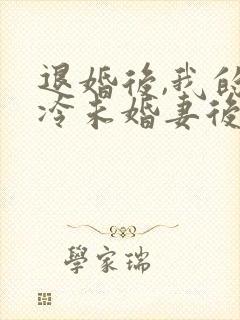 退婚後,我的
冷未婚妻後
學家瑞